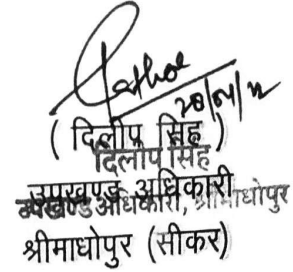 28/04/12
( दिलीप सिंह )
दिलीप सिंह
उपखण्ड अधिकारी
उपखण्ड अधिकारी, श्रीमाधोपुर
श्रीमाधोपुर (सीकर)